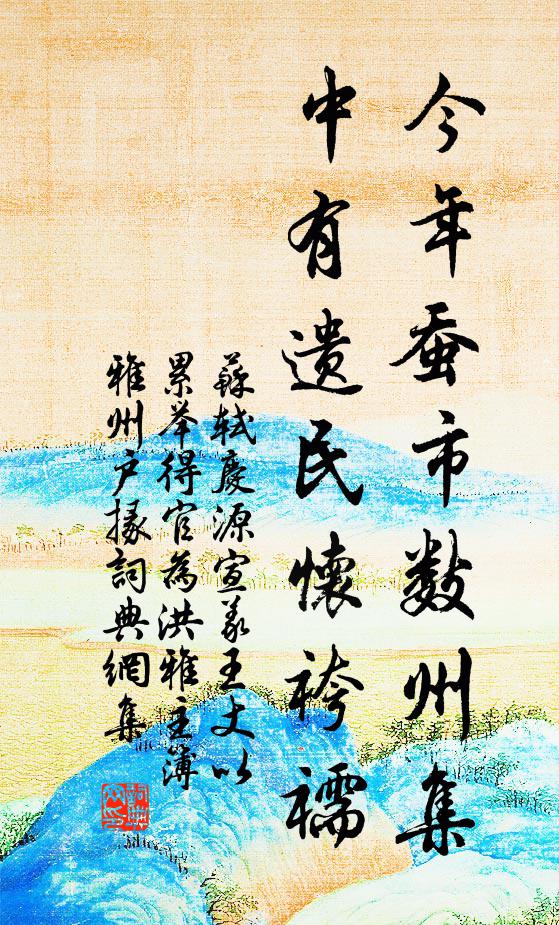 今年蚕市数州集
中有遗民怀袴襦
蘇軾慶源宣义王丈以
累举得官為洪雅主簿
雅州户掾詞典網集